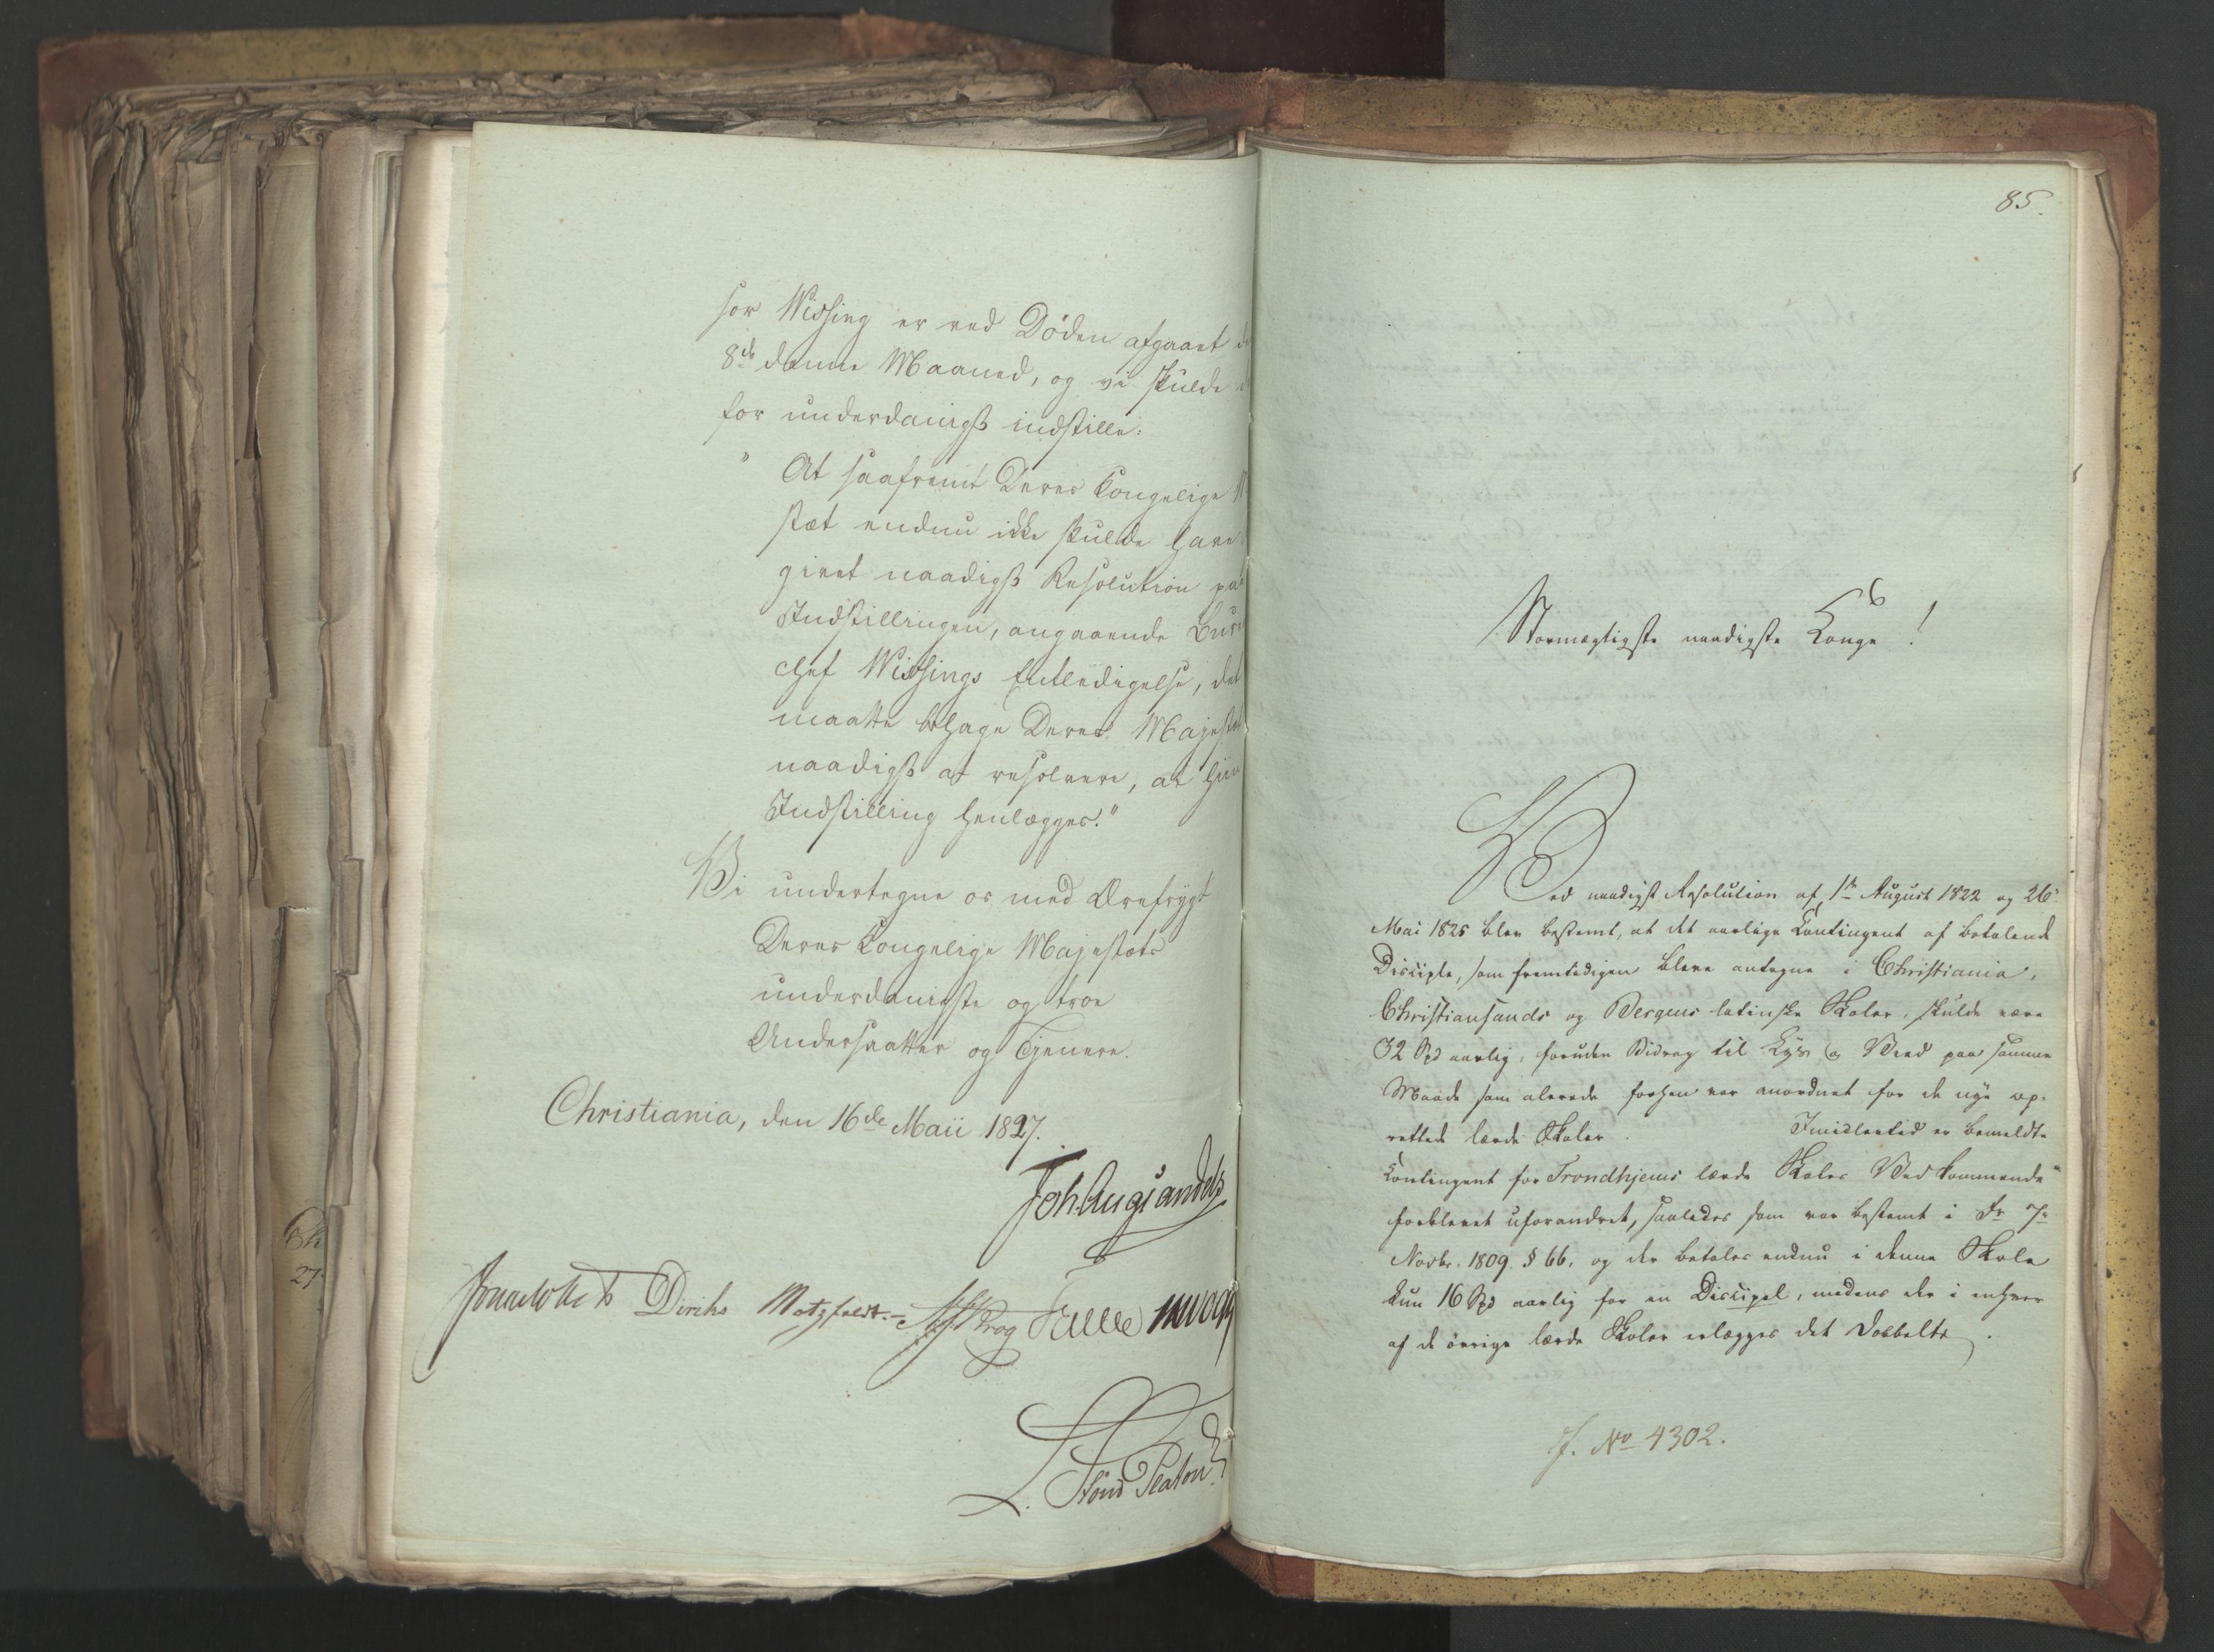 sor Wissing er ved Döden afgaaet d
8de denne Maaned, og vi skulde d
for underdanigst indstille:
" At saafremt Deres Kongelige M
stæt endnu ikke skulde have
givet naadigst Resolution paa
Indstillingen, angaaende Bure
chef Wissings Entledigelse, det
maatte behage Deres Majestæt
naadigst at resolvere, at hiin
Indstilling henlægges."
Vi undertegne os med Ærefrygt
Deres Kongelige Majestæts
underdanigste og troe
Undersaatter og Tjenere.
Christiania, den 16de Maii 1827.
Joh. Aug. Sandels
Collett Diriks Motzfeldt. Krog Falsen
L. Stoud Platou
85.
Stormægtigste naadigste Konge!
Ved naadigst Resolution af 1ste August 1822 og 26
Mai 1825 blev bestemt, at det aarlige Contingent af betalende
Disciple, som fremtidigen bleve antagne i Christiania,
Christiansands og Bergens latinske Skoler, skulde være
32 Spd aarlig, foruden Bidrag til Lys og Veed paa samme
Maade som allerede forhen var anordnet for de nye op-
rettede lærde Skoler. Imidlertid er bemeldte
Contingent for Trondhjems lærde Skoles Vedkommende
forblevet uforandret, saaledes som var bestemt i Fr 7
Novbr. 1809 § 66, og der betales endnu i denne Skole
kun 16 Spd aarlig for en Discipel, medens der i enhver
af de övrige lærde Skoler erlægges det Dobbelte.
J. No 4302.